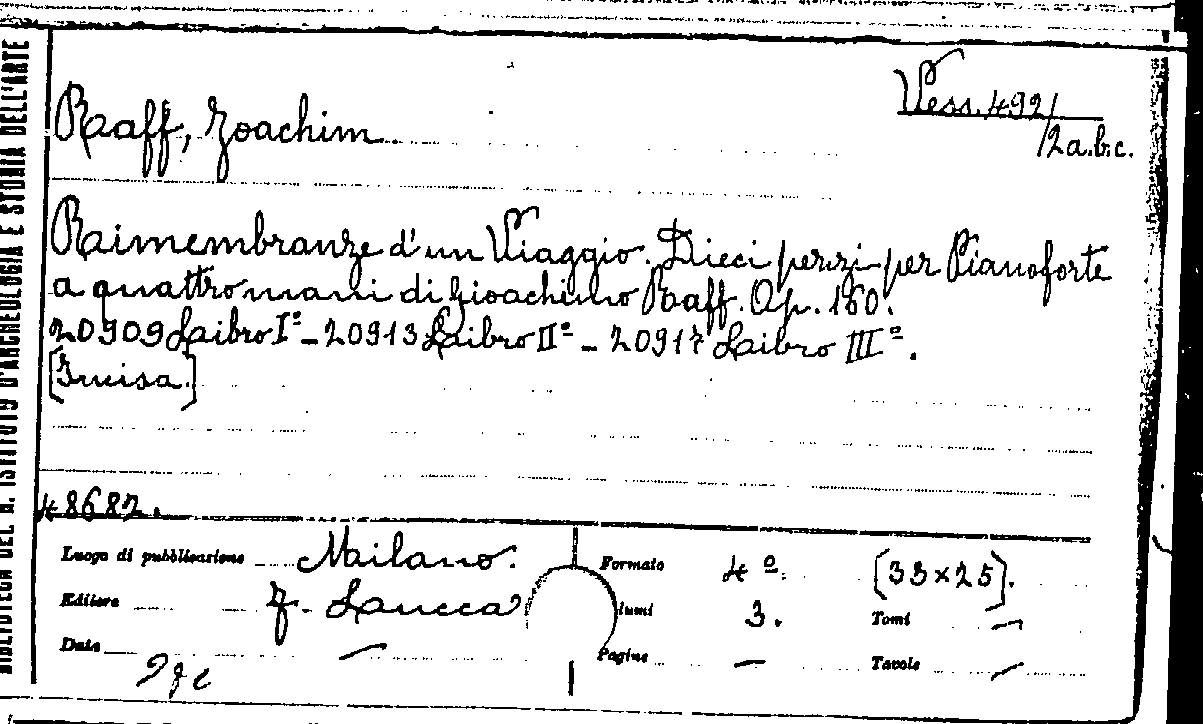 BIBLIOTECA DEL R. ISTITUTO D'ARCHEOLOGIA E STORIA DELL'ARTE
Vess. 492/
/2 a.b.c.
Raaff, Joachim
Raimembranze d'un Viaggio. Dieci pezzi per Pianoforte
a quattro mani di Gioachimo Raaff. Op. 160.
20909 Libro I° - 20913 Libro II° - 20917 Libro III°.
[Incisa.]
48682.
Luogo di pubblicazione Milano. Formato 4°. [33×25].
Editore F. Lucca lumi 3. Tomi —
Data — Pagine — Tavole —